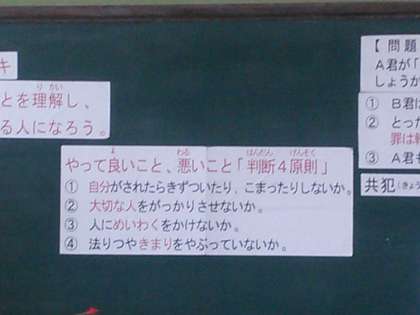 キ
とを理解し、
る人になろう。
やって良いこと、悪いこと「判断４原則」
① 自分がされたらきずついたり、こまったりしないか。
② 大切な人をがっかりさせないか。
③ 人にめいわくをかけないか。
④ 法りつやきまりをやぶっていないか。
【問題
A君が「
しょうか
① B君に
② とった
罪は
③ A君も
共犯（きょう